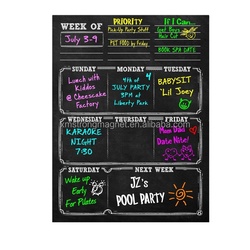 WEEK OF
PRIORITY
If I Can...
July 3-9
Pick-Up Party Stuff
Get Boys
Hair Cut
PET FOOD by Friday
BOOK SPA DATE
SUNDAY
MONDAY
TUESDAY
Lunch with
Kiddos
@ Cheesecake
Factory
4th of
JULY PARTY
3pm at
Liberty Park
BABYSIT
'Lil Joey
WEDNESDAY
THURSDAY
FRIDAY
KARAOKE
NIGHT
7:30
Mom Dad
Date Nite!
SATURDAY
NEXT WEEK
Wake up
Early
For Pilates
JZ's
POOL PARTY
kmstrongmagnet.en.alibaba.com